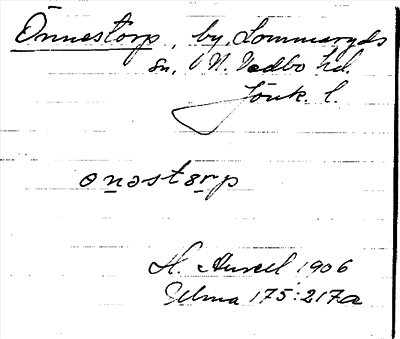 Önnestorp, by, Lommaryds
sn, N. Vedbo hd.
Jönk. l.
ɵnəstɵrp
H. Aurell 1906
Ulma 175:217a